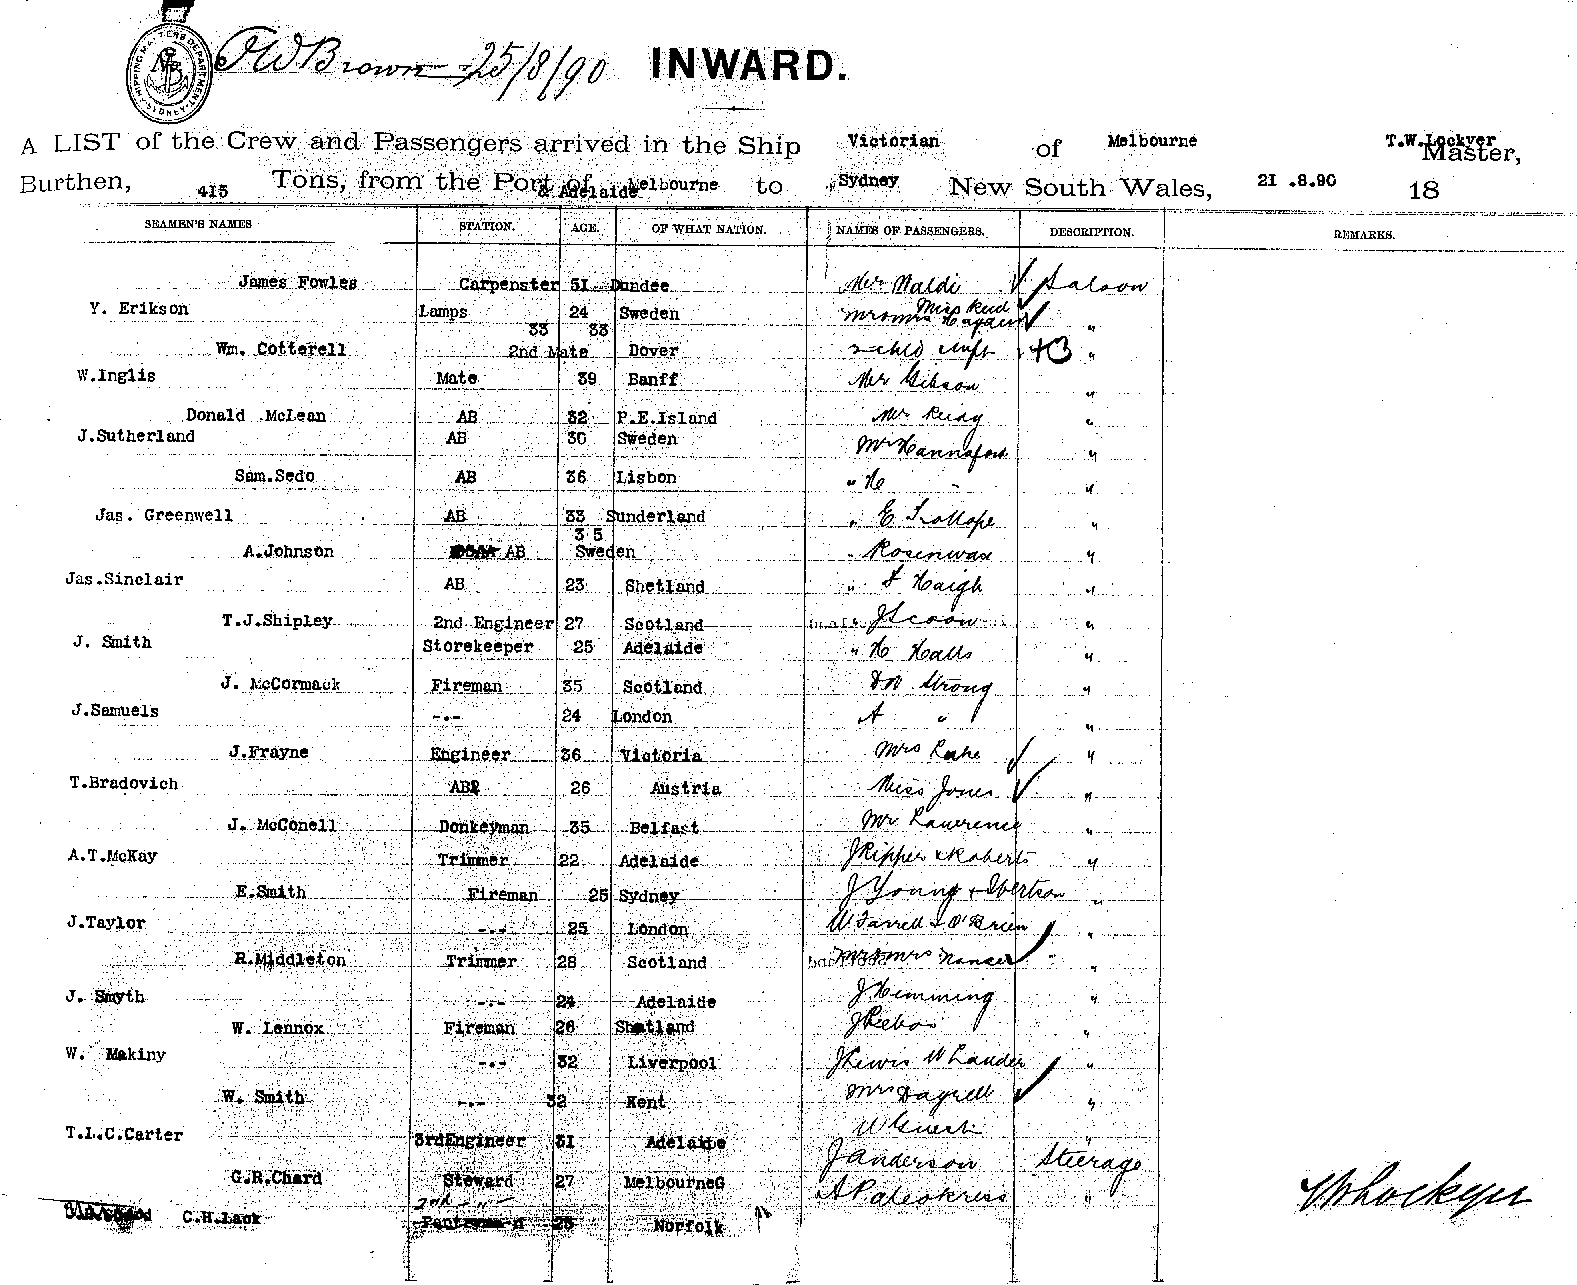 SHIPPING MASTERS DEPARTMENT SYDNEY
FWBrown 25/8/90 INWARD.
A LIST of the Crew and Passengers arrived in the Ship Victorian of Melbourne T.W.Lockyer Master,
Burthen, 415 Tons, from the Port of Melbourne & Adelaide to Sydney New South Wales, 21 .8.90 18
SEAMEN'S NAMES STATION. AGE. OF WHAT NATION. NAMES OF PASSENGERS. DESCRIPTION. REMARKS.
James Fowles Carpenster 51 Dundee Mr Maldi Saloon
Miss Reid
Y. Erikson Lamps 24 Sweden Mr & Mrs Hayden "
33 33
Wm. Cotterell 2nd Mate Dover 2 chld +3 "
W.Inglis Mate 39 Banff Mr Gibson "
Donald McLean AB 32 P.E.Island Mr Reidy "
J.Sutherland AB 30 Sweden Mr Hannaford "
Sam.Sedo AB 36 Lisbon " H "
Jas. Greenwell AB 33 Sunderland " E Trollope "
35
A.Johnson AB Sweden " Rosenwax "
Jas.Sinclair AB 23 Shetland " F Haigh "
T.J.Shipley 2nd Engineer 27 Scotland J Scoon "
J. Smith Storekeeper 25 Adelaide " H Halls "
J. McCormack Fireman 35 Scotland Strong "
J.Samuels -.- 24 London A " "
J.Frayne Engineer 36 Victoria Mrs Lake "
T.Bradovich AB 26 Austria Miss Jones "
J. McConell Donkeyman 35 Belfast Mr Lawrence "
A.T.McKay Trimmer 22 Adelaide J Ripper & Roberts "
E.Smith Fireman 25 Sydney J Young + Ibertson "
J.Taylor -.- 25 London W Farrell & O'Brien "
R.Middleton Trimmer 28 Scotland Mr & Mrs "
J. Smyth -.- 24 Adelaide J Hemming "
W. Lennox Fireman 26 Shetland "
W. Makiny -.- 32 Liverpool J Lewis W Lauder "
W. Smith -.- 32 Kent Mrs Dayrell "
T.L.C.Carter 3rdEngineer 31 Adelaide W Guest "
G.R.Chard Steward 27 MelbourneG J Anderson Steerage
2nd -"-
C.H.Lack Pantryman 23 Norfolk A Paleokress "
TW Lockyer